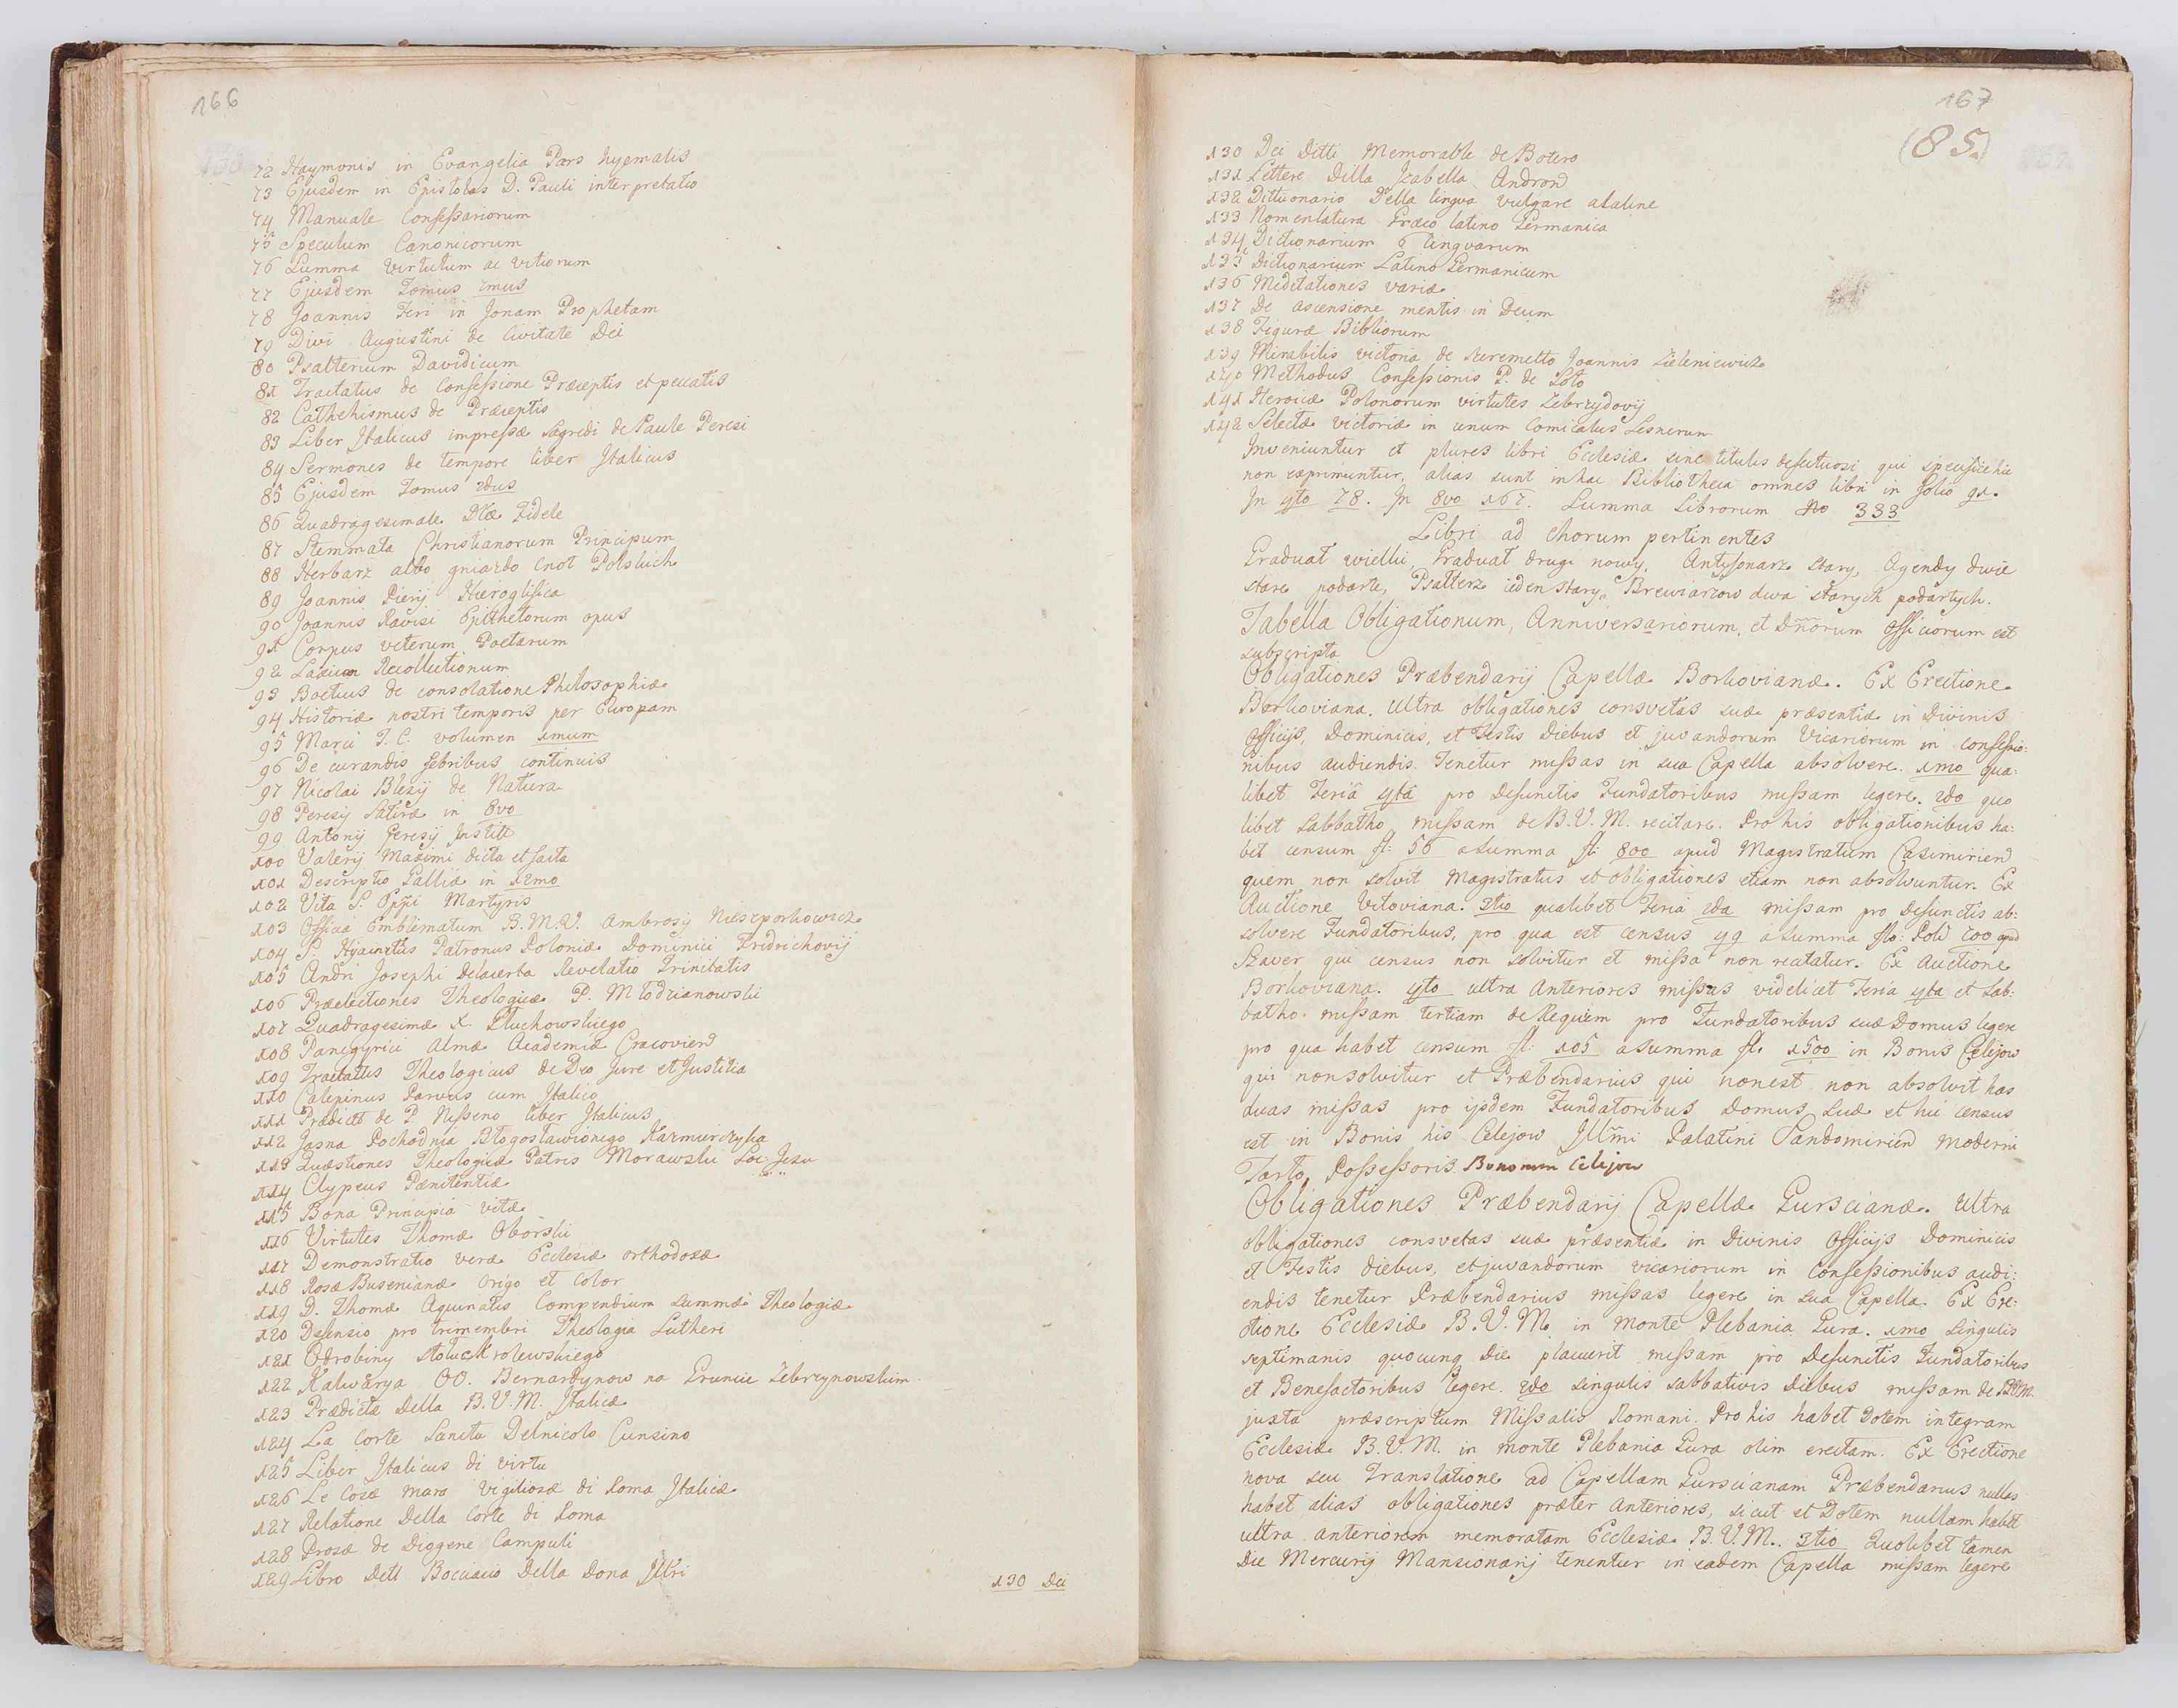 166
72 Haymonis in Evangelia Pars hyemalis
73 Ejusdem in Epistolas D. Pauli interpretatio
74 Manuale Confessariorum
75 Speculum Canonicorum
76 Summa virtutum ac vitiorum
77 Ejusdem Tomus 1mus
78 Joannis Feri in Jonam Prophetam
79 Divi Augustini de Civitate Dei
80 Psalterium Davidicum
81 Tractatus de Confessione Præceptis et peccatis
82 Cathehismus de Præceptis
83 Liber Italicus impressæ Sagredi de Paule Peresi
84 Sermones de tempore liber Italicus
85 Ejusdem Tomus 2dus
86 Quadragesimale Fidele
87 Stemmata Christianorum Principum
88 Herbarz albo gniazdo Cnot Polskich
89 Joannis Pierij Hieroglifica
90 Joannis Ravisi Epithetorum opus
91 Corpus veterum Poetarum
92 Recollectionum
93 Boetius de consolatione Philosophiæ
94 Historiæ nostri temporis per Europam
95 Marci T. C. volumen 1mum
96 De curandis febribus continuis
97 Nicolai Blesij de Natura
98 Peresij Satiræ in 8vo
99 Antonij Peresij Instit
100 Valerij Maximi dicta et facta
101 Descriptio Galliæ in 12mo
102 Vita S. Martyris
103 Officia Emblematum B.M.V. Ambrosij Nieszporkowicz
104 S. Hyacintus Patronus Poloniæ Dominici Fridrichovij
105 Andri Josephi Delacerba Revelatio Trinitatis
106 Prælectiones Theologicæ P. Młodzianowski
107 Quadragesimæ X. Tłuchowskiego
108 Panegyrici Almæ Academiæ Cracovien
109 Tractattus Theologicus de Deo Jure et Justitia
110 Calepinus Parvus cum Italico
111 Prædict de P Nisseno liber Italicus
112 Jasna Pochodnia Błogosławionego Kazmierczyka
113 Quæstiones Theologicæ Patris Morawski Soc: Jesu
114 Clypeus Pænitentiæ
115 Bona Principia vitæ
116 Virtutes Thomæ Oborski
117 Demonstratio veræ Ecclesiæ orthodoxæ
118 Rosæ Busenianæ Origo et Color
119 D. Thomæ Aquinatis Compendium summæ Theologiæ
120 Defensio pro trimembri Theologia Lutheri
121 Odrobiny stołu Krolewskiego
122 Kalwarya OO. Bernardynow na Gruncie Zebrzynowskim
123 Prædictæ Della B.V.M. Italicæ
124 La Corte Sancta Delnicolo Cunsino
125 Liber Italicus di virtu
126 Le Cose mara vigiliosæ di Roma Italicæ
127 Relatione Della Corte di Roma
128 Prosæ de Diggene Campuli
129 Libro Dell Bocciacio Della Dona Illri
130 Dei
167
(85.)
130 Dei Ditti Memorable de Botero
131 Lettere Dilla Izabella Andron
132 Dittionario Della lingva vulgare ataline
133 Nomenlatura Græco latino Germanica
134 Dictionarium 6 lingvarum
135 Dictionarium Latino Germanicum
136 Meditationes variæ
137 De ascensione mentis in Deum
138 Figuræ Bibliorum
139 Mirabilis victoria de Szeremetto Joannis Zieleniewicz
140 Methodus Confessionis P. de Soto
141 Heroicæ Polonorum virtutes Zebrzydovij
142 Selectæ victoriæ in unum Comicatus Lesnerum
Inveniuntur et plures libri Ecclesiæ sine titulis defectuosi qui specifice hic
non exprimuntur, alias sunt in hac Bibliotheca omnes libri in folio 91.
In 4to 78. In 8vo 167. Summa Librorum No 333
Libri ad Chorum pertinentes
Graduał wielki, Graduał drugi nowy, Antyfonarz stary, Agendy dwie
stare podarte, Psałterz ieden stary, Brewiarzow dwa starych podartych.
Tabella Obligationum, Anniversariorum, et Dnorum Officiorum est
subscripta
Obligationes Præbendarij Capellæ Borkovianæ. Ex Erectione
Borkoviana. Ultra obligationes consvetas suæ præsentiæ in Divinis
Officijs, Dominicis, et Festis Diebus et juvandorum Vicariorum in confessio:
nibus audiendis. Tenetur missas in sua Capella absolvere. 1mo qua:
libet Feria 4ta pro Defunctis Fundatoribus missam legere. 2do quo
libet Sabbatho missam de B.V.M. recitare. Pro his obligationibus ha:
bet censum fl: 56 a summa fl: 800 apud Magistratum Casimirien
quem non solvit Magistratus et Obligationes etiam non absolvuntur. Ex
Auctione Vitoviana. 3tio qualibet Feria 2da missam pro Defunctis ab:
solvere Fundatoribus, pro qua est census 49 a summa flo: Pol 700 apud
Szaver qui census non solvitur et missa non recitatur. Ex Auctione
Borkoviana. 4to ultra Anteriores missas videlicet Feria 4ta et Sab:
batho. missam tertiam de Requiem pro Fundatoribus suæ Domus legere
pro qua habet censum fl: 105 a summa fl. 1500 in Bonis Celejow
qui non solvitur et Præbendarius qui non est non absolvit has
duas missas pro ijsdem Fundatoribus Domus suæ et hic census
est in Bonis his Celejow Illmi Palatini Sandomirien moderni
Tarło Possessoris Bonorum Celejow
Obligationes Præbendarij Capellæ Gurscianæ. Ultra
obligationes consvetas suæ præsentiæ in Divinis Officijs Dominicis
et Festis diebus, et juvandorum vicariorum in Confessionibus audi:
endis tenetur Præbendarius missas legere in sua Capella. Ex Ere:
ctione Ecclesiæ B.V.M. in Monte Plebania Gura. 1mo singulis
septimanis quocunq Die placuerit missam pro Defunctis Fundatoribus
et Benefactoribus legere. 2do singulis sabbativis diebus missam de BVM.
juxta præscriptum Missalis Romani. Pro his habet Dotem integram
Ecclesiæ B.V.M. in monte Plebania Gura olim erectam. Ex Erectione
nova seu Translatione ad Capellam Gurscianam Præbendarius nullas
habet alias obligationes præter anteriores, sicut et Dotem nullam habet
ultra anteriorem memoratam Ecclesiæ B.V.M. 3tio Quolibet tamen
Die Mercurij Mansionarij tenentur in eadem Capella missam legere